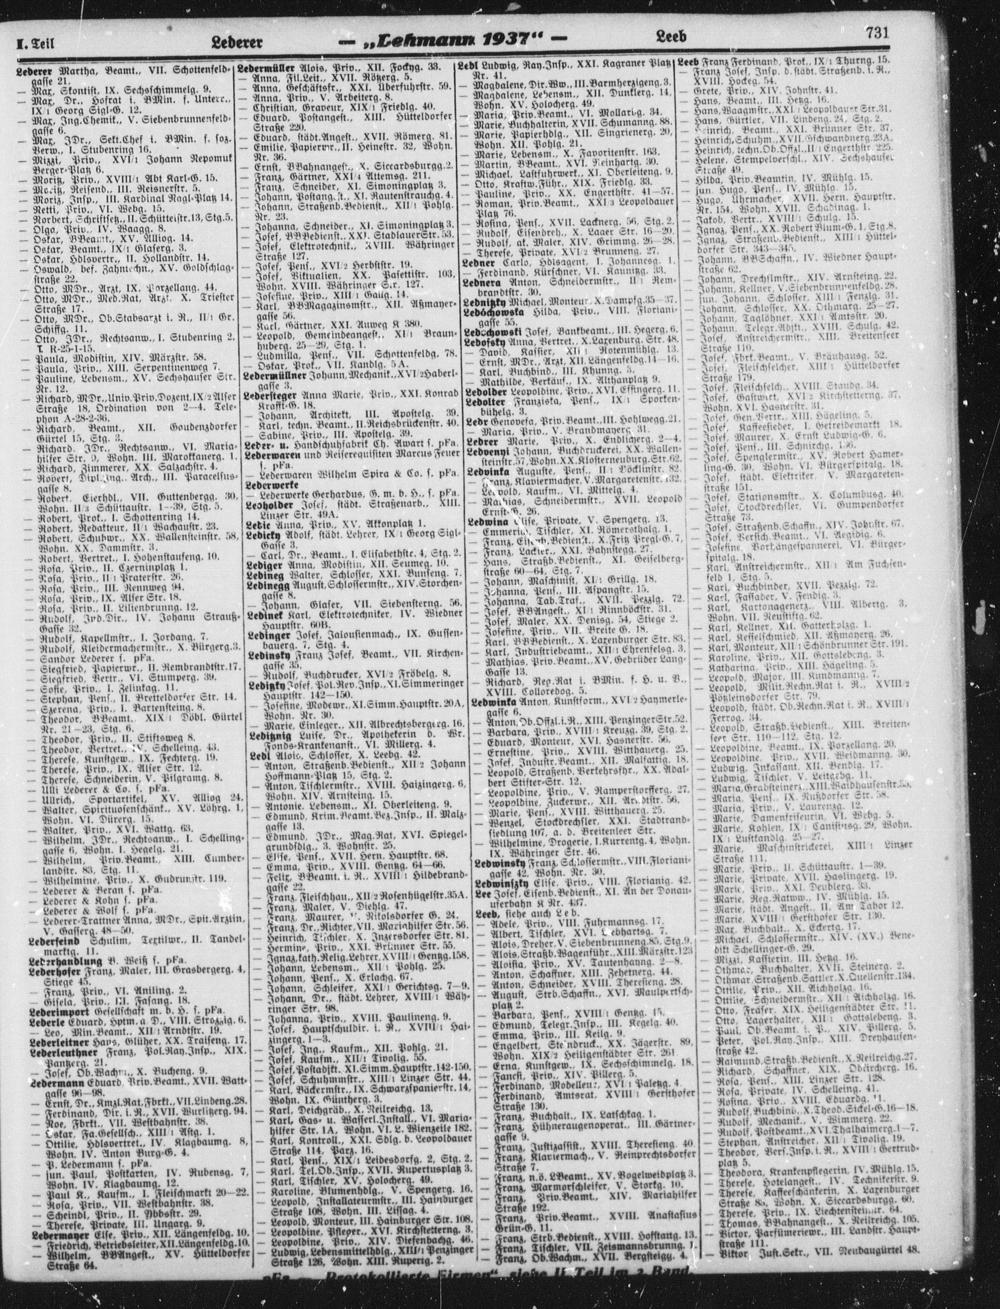 I. Teil
Lederer
— „Lehmann 1937“ —
Leeb
731
Lederer Martha, Beamt., VII. Schottenfeld-
gasse 21.
— Max, Skontist, IX. Sechsschimmelg. 9.
— Max, Dr., Hofrat i. BMin. f. Unterr.,
IX/1 Georg Sigl-G. 12.
— Max, Ing. Chemik., V. Siebenbrunnenfeld-
gasse 6.
— Max, JDr., Sekt.Chef i. BMin. f. soz.
Verw., I. Stubenring 16.
— Mizzi, Priv., XVI/1 Johann Nepomuk
Berger-Platz 6.
— Moritz, Priv., XVIII/1 Abt Karl-G. 15.
— Moritz, Reisend., III. Reisnerstr. 5.
— Moriz, Insp., III. Kardinal Nagl-Platz 14.
— Netti, Priv., VI. Webg. 15.
— Olga, Priv., IV. Waagg. 8.
— Oskar, BBeamt., XV. Alliog. 14.
— Oskar, Beamt., IX/1 Glaserg. 3.
— Oskar, Hdlsvertr., II. Hollandstr. 14.
— Oswald, bef. Zahntechn., XV. Goldschlag-
straße 22.
— Otto, MDr., Arzt, IX. Porzellang. 44.
— Otto, MDr., Med.Rat, Arzt, X. Triester
Straße 17.
— Otto, MDr., Ob.Stabsarzt i. R., II/1 Gr.
Schiffg. 11.
— Otto, JDr., Rechtsanw., I. Stubenring 2.
T. R-25-1-15.
— Paula, Modistin, XIV. Märzstr. 58.
— Paula, Priv., XIII. Serpentinenweg 7.
— Pauline, Lebensm., XV. Sechshauser Str.
Nr. 12.
— Richard, MDr., Univ.Priv.Dozent, IX/2 Alser
Straße 18, Ordination von 2—4. Tele-
phon A-28-2-36.
— Richard, Beamt., XII. Gaudenzdorfer
Gürtel 15, Stg. 3.
— Richard, JDr., Rechtsanw., VI. Maria-
hilfer Str. 9, Wohn. III. Marokkanerg. 1.
— Richard, Zimmerer, XX. Salzachstr. 4.
— Robert, Dipl.Ing., Arch., III. Paracelsus-
gasse 8.
— Robert, Eierhdl., VII. Guttenbergg. 30,
Wohn. II/2 Schüttaustr. 1—39, Stg. 5.
— Robert, Prok., I. Schottenring 14.
— Robert, Redakteur, II/1 Schüttaustr. 23.
— Robert, Schuhw., XX. Wallensteinstr. 58,
Wohn. XX. Dammstr. 3.
— Robert, Vertret., I. Hohenstaufeng. 10.
— Rosa, Priv., II. Czerninplatz 1.
— Rosa, Priv., II/1 Praterstr. 26.
— Rosa, Priv., III. Rennweg 94.
— Rosa, Priv., IX. Alser Str. 18.
— Rosa, Priv., II. Lilienbrunng. 12.
— Rudolf, Ind.Dir., IV. Johann Strauß-
Gasse 32.
— Rudolf, Kapellmstr., I. Jordang. 7.
— Rudolf, Kleidermachermstr., X. Bürgerg. 3.
— Sandor Lederer s. pFa.
— Siegfried, Papierw., II. Rembrandtstr. 17.
— Siegfried, Vertr., VI. Stumperg. 39.
— Sofie, Priv., I. Zelinkag. 11.
— Stephan, Pens., II. Bretteldorfer Str. 14.
— Szerena, Priv., I. Bartensteing. 8.
— Theodor, BBeamt., XIX/1 Döbl. Gürtel
Nr. 21—23, Stg. 6.
— Theodor, Priv., II. Stiftsweg 8.
— Theodor, Vertret., IV. Schelleing. 43.
— Therese, Kunstgew., IX. Fechterg. 19.
— Therese, Priv., IX. Alser Str. 12.
— Therese, Schneiderin, V. Pilgramg. 8.
— Ulli Lederer & Co. s. pFa.
— Ullrich, Sportartikel, XV. Alliog. 24.
— Walter, Spirituosenschänk., XV. Löhrg. 9,
Wohn. VI. Dürerg. 15.
— Walter, Priv., XVI. Wattg. 63.
— Wilhelm, JDr., Rechtsanw., I. Schelling-
gasse 6, Wohn. I. Hegelg. 21.
— Wilhelm, Priv.Beamt., XIII. Cumber-
landstr. 83, Stg. 11.
— Wilhelmine, Priv., X. Gudrunstr. 119.
— Lederer & Beran s. pFa.
— Lederer & Kohn s. pFa.
— Lederer & Wolf s. pFa.
— Lederer-Trattner Anna, MDr., Spit.Arztin,
V. Gasserg. 48—50.
Lederfeind Schulim, Textilw., II. Tandel-
marktg. 11.
Lederhandlung B. Weiß s. pFa.
Lederhofer Franz, Maler, III. Grasbergerg. 4,
Stiege 45.
— Franz, Priv., VI. Aniling. 2.
— Gisela, Priv., III. Fasang. 18.
Lederimport Gesellschaft m. b. H. s. pFa.
Lederle Eduard, Hptm. a. D., VIII. Strozzig. 6.
— Leo, Min.Beamt., XII/1 Arndtstr. 19.
Lederleitner Hans, Glüher, XX. Traiseng. 17.
Lederleuthner Franz, Pol.Ray.Insp., XIX.
Panzerg. 21.
— Josef, Ob.Wachm., X. Bucheng. 9.
Ledermann Eduard, Priv.Beamt., XVII. Watt-
gasse 96—98.
— Ernst, Dr., Kmzl.Rat, Fbrkt., VII. Lindeng. 28.
— Ferdinand, Dir. i. R., XVII. Wurlitzerg. 94.
— Noe, Fbrkt., VII. Westbahnstr. 38.
— Oskar, Fa.Gesellsch., XIII/1 Astg. 1.
— Ottilie, Hdlsvertret., IV. Klagbaumg. 8,
Wohn. IV. Anton Burg-G. 4.
— P. Ledermann s. pFa.
— jun. Paul, Postkarten, IV. Rubensg. 7,
Wohn. IV. Klagbaumg. 12.
— Paul K., Kaufm., I. Fleischmarkt 20—22.
— Rosa, Priv., VII. Westbahnstr. 38.
— Scheindl, Priv., II. Ybbsstr. 29.
— Therese, Private, III. Ungarg. 9.
Ledermayer Else, Priv., XII. Längenfeldg. 10.
— Friedrich, Betriebsleiter, XII. Längenfeldg. 10.
— Wilhelm, BBAngest., XV. Hütteldorfer
Straße 64.
Ledermüller Alois, Priv., XII. Fockyg. 33.
— Anna, Fil.Leit., XVII. Rötzerg. 5.
— Anna, Geschäftsfr., XXI. Überfuhrstr. 59.
— Anna, Priv., V. Arbeiterg. 8.
— Christian, Graveur, XIX/1 Friedlg. 40.
— Eduard, Postangest., XIII. Hütteldorfer
Straße 220.
— Eduard, städt.Angest., XVII. Römerg. 81.
— Emilie, Papierw., II. Heinestr. 32, Wohn.
Nr. 36.
— Ernst, BBahnangest., X. Siccardsburgg. 2.
— Franz, Gärtner, XXI/1 Attemsg. 211.
— Franz, Schneider, XI. Simoningplatz 3.
— Johann, Postang.st., XI. Rautenstrauchg. 4.
— Johann, Straßenb.Bedienst., XII/1 Pohlg.
Nr. 23.
— Johanna, Schneider., XI. Simoningplatz 3.
— Josef, BBBedienst., XXI. Stadlauer Str. 53.
— Josef, Elektrotechnik., XVIII. Währinger
Straße 127.
— Josef, Pens., XVI/2 Herbststr. 19.
— Josef, Viktualien, XX. Pasettistr. 103,
Wohn. XVIII. Währinger Str. 127.
— Josefine, Priv., XIII/1 Gaug. 14.
— Karl, BBMagazinsmstr., XII. Aßmayer-
gasse 56.
— Karl, Gärtner, XXI. Anweg K 380.
— Leopold, Gemeindeangest., XI/1 Braun-
huberg. 25—29, Stg. 1.
— Ludmilla, Pens., VII. Schottenfeldg. 78.
— Oskar, Prot., VII. Kandlg. 5 A.
Ledermüllner Johann, Mechanik., XVI/2 Haberl-
gasse 3.
Ledersteger Anna Marie, Priv., XXI. Konrad
Krafft-G. 18.
— Johann, Architekt, III. Apostelg. 39.
— Karl, techn. Beamt., II. Reichsbrückenstr. 40.
— Sabine, Priv., III. Apostelg. 39.
Leder- u. Handschuhfabrik Ch. Awart s. pFa.
Lederwaren und Reiserequisiten Marcus Feuer
s. pFa.
— Lederwaren Wilhelm Spira & Co. s. pFa.
Lederwerke
— Lederwerke Gerhardus, G. m. b. H. s. pFa.
Leoholder Josef, städt. Straßenarb., XIII.
Linzer Str. 49 A.
Ledie Anna, Priv., XV. Akkonplatz 1.
Lediety Adolf, städt. Lehrer, IX/1 Georg Sigl-
Gasse 3.
— Carl, Dr., Beamt., I. Elisabethstr. 4, Stg. 2.
Lediger Anna, Modistin, XII. Seumeg. 10.
Ledineg Walter, Schlosser, XXI. Bunseng. 7.
Ledinegg August, Schlossermstr., XIV. Storchen-
gasse 8.
— Johann, Glaser, VII. Siebensterng. 56.
Ledinek Karl, Elektrotechniker, IV. Wiedner
Hauptstr. 60 B.
Ledinger Josef, Jalousienmach., IX. Gussen-
bauerg. 7, Stg. 4.
Ledinsky Franz Josef, Beamt., VII. Kirchen-
gasse 35.
— Rudolf, Buchdrucker, XVI/2 Fröbelg. 8.
Ledizky Josef, Pol.Rev.Insp., XI. Simmeringer
Hauptstr. 142—150.
— Josefine, Modew., XI. Simm. Hauptstr. 20 A,
Wohn. Nr. 30.
— Marie, Einleger., XII. Albrechtsbergerg. 16.
Leditznig Luise, Dr., Apotheterin d. Wr.
Fonds-Krankenanst., VI. Millerg. 4.
Ledl Alois, Schlosser, X. Leebg. 42.
— Anton, Straßenb.Bedienst., XII/2 Johann
Hoffmann-Platz 15, Stg. 2.
— Anton, Tischlermstr., XVIII. Haizingerg. 6,
Wohn. XIV. Arnsteing. 15.
— Antonie, Lebensm., XI. Oberleiteng. 9.
— Edmund, Krim.Beamt.Bez.Insp., II. Malz-
gasse 13.
— Edmund, JDr., Mag.Rat, XVI. Spiegel-
grundsbldg., 3. Wohnstr. 25.
— Elise, Pens., VII. Hern. Hauptstr. 68.
— Emma, Priv., XVIII. Genzg. 64—66.
— Felix, BBeamt. i. R., XVIII/1 Hildebrand-
gasse 22.
— Franz, Fleischhau., XII/2 Rosenhügelstr. 35 A.
— Franz, Maler, V. Diehlg. 47.
— Franz, Maurer, V. Nikolsdorfer G. 24.
— Franz, Dr., Richter, VII. Mariahilfer Str. 56.
— Heinrich, Tischler, X. Inzersdorfer Str. 81.
— Hermine, Priv., XXI. Brünner Str. 55.
— Ignaz, kath. Relig.Lehrer, XVIII/1 Genzg. 158.
— Johann, Lebensm., XII/1 Pohlg. 25.
— Johann, Pens., X. Erlachg. 67.
— Johann, Schleifer, XXI/1 Gerichtsg. 7—9.
— Johann, Dr., städt. Lehrer, XVIII/1 Wäh-
ringer Str. 98.
— Johanna, Priv., XVIII. Paulineng. 9.
— Josef, Hauptschuldir. i. R., XVIII/1 Hai-
zingerg. 1—3.
— Josef, Ing., Kaufm., XII. Pohlg. 21.
— Josef, Kaufm., XII/1 Tivolig. 55.
— Josef, Postadjkt., XI. Simm. Hauptstr. 142-150.
— Josef, Schuhmmstr., XIII/1 Linzer Str. 44.
— Karl, Bäckermstr., IX. Schwarzspanierstr. 14,
Wohn. IX. Güntherg. 3.
— Karl, Deichgräb., X. Neilreichg. 13.
— Karl, Gas- u. Wasserl.Install., VI. Maria-
hilfer Str. 1 A, Wohn. VI. L. Wienzeile 182.
— Karl, Kontroll., XXI. Sdlg. b. Leopoldauer
Straße 114, Parz. 16.
— Karl, Pens., XIX/1 Leidesdorfg. 2, Stg. 2.
— Karl, Tel.Ob.Insp., XVII. Rupertusplatz 3.
— Karl, Tischler, XV. Holocherg. 49.
— Karoline, Blumenhdlg., V. Spengerg. 16.
— Leopold, Installateurmstr., III. Hainburger
Straße 108, Wohn. III. Lissag. 4.
— Leopold, Monteur, III. Hainburger Str. 108.
— Leopoldine, Pfleger., XVI. Kirchstetterng. 3.
— Leopoldine, Priv., XIV. Diefenbachg. 46.
— Ludwig, Lebensmittelhdlg., XIII/1 Penzinger
Straße 126, Wohn. XIII. Rupertg. 2.
Ledl Ludwig, Ray.Insp., XXI. Kagraner Platz
Nr. 41.
— Magdalene, Dir.Ww., III. Barmherzigeng. 3.
— Magdalene, Lebensm., XII. Dunklerg. 14,
Wohn. XV. Holocherg. 49.
— Maria, Priv.Beamt., VI. Mollardg. 34.
— Marie, Buchhalterin, XVII. Schumanng. 88.
— Marie, Papierhdlg., XII. Singrienerg. 20,
Wohn. XII. Pohlg. 21.
— Marie, Lebensm., X. Favoritenstr. 163.
— Martin, BBeamt., XVI. Reinhartg. 30.
— Michael, Lastfuhrwerk., XI. Oberleiteng. 9.
— Otto, Kraftw.Führ., XIX. Friedlg. 33.
— Pauline, Priv., XX. Engerthstr. 41—57.
— Roman, Priv.Beamt., XXI/3 Leopoldauer
Platz 76.
— Rosina, Pens., XVII. Lacknerg. 56, Stg. 2.
— Rudolf, Eisendreh., X. Laaer Str. 16—20.
— Rudolf, ak. Maler, XIV. Grimmg. 26—28.
— Therese, Private, XVI/2 Brunneng. 27.
Ledner Carlo, Hdlsagent, I. Johannesg. 1.
— Ferdinand, Kürschner, VI. Kaunitzg. 33.
Lednera Anton, Schneidermstr., II/1 Rem-
brandtstr. 30.
Lednitzky Michael, Monteur, X. Dampfg. 35—37.
Ledochowska Hilda, Priv., VIII. Floriani-
gasse 55.
Ledochowski Josef, Bankbeamt., III. Hegerg. 6.
Ledofsky Anna, Vertret., X. Laxenburg. Str. 48.
— David, Kassier, XII/1 Rotenmühlg. 13.
— Ernst, MDr., Arzt, XII. Längenfeldg. 11—16.
— Karl, Buchbind., III. Khunng. 5.
— Mathilde, Verkäuf., IX. Althanplatz 9.
Ledolder Leopoldine, Priv., XVI. Effingerg. 11.
Ledolter Franziska, Pens., IX/1 Sporken-
bühelg. 3.
Ledr Genovefa, Priv.Beamt., III. Hohlwegg. 21.
— Maria, Priv., V. Brandmayerg. 31.
Ledrer Marie, Priv., X. Endlicherg. 2—4.
Ledvenyi Johann, Buchdruckerei, XX. Wallen-
steinstr. 57, Wohn. XX. Klosterneuburg. Str. 62.
Ledvinka Auguste, Pens., II/1 Böcklinstr. 82.
— Franz, Klaviermacher, V. Margaretenstr. 132.
— Leopold, Kaufm., VI. Mittelg. 4.
— Mathias, Schneidermstr., XVII. Leopold
Ernst-G. 26.
Ledwina Elise, Private, V. Spengerg. 13.
— Emmerich, Tischler, XI. Römersthalg. 1.
— Franz, Eisenb.Bedienst., X. Fritz Pregl-G. 7.
— Franz, Lackier., XXI. Bahnstegg. 27.
— Hans, Straßb.Bedienst., XI. Geiselberg-
straße 60—64, Stg. 7.
— Johann, Maschinist, XI/1 Grillg. 18.
— Johanna, Pens., III. Aspangstr. 15.
— Johanna, Tab.Traf., XVII. Pezzlg. 72.
— Josef, BBAngest., XI/1 Rinnböckstr. 31.
— Josef, Maler, XX. Denisg. 54, Stiege 2.
— Josefine, Priv., VII. Breite G. 18.
— Karl, BBBedienst., X. Laxenburger Str. 83.
— Karl, Industriebeamt., XII/1 Ehrenfelsg. 3.
— Mathias, Priv.Beamt., XV. Gebrüder Lang-
Gasse 13.
— Richard, Reg.Rat i. BMin. f. H. u. V.,
XVIII. Colloredog. 5.
Ledwinka Anton, Kunstform., XVI/2 Haymerle-
gasse 6.
— Anton, Ob.Offzl. i. R., XIII. Penzinger Str. 52.
— Barbara, Priv., XVIII/1 Kreuzg. 39, Stg. 2.
— Eduard, Monteur, XVI. Hasnerstr. 56.
— Ernestine, Priv., XIII. Witthauerg. 25.
— Josef, Industr.Beamt., XII. Malfattig. 18.
— Leopold, Straßenb.Verkehrsfhr., XX. Adal-
bert Stifter-Str. 12.
— Leopoldine, Priv., V. Ramperstorfferg. 27.
— Leopoldine, Zuckerw., XII. Arndtstr. 56.
— Marie, Pens., XVIII. Witthauerg. 25.
— Wenzel, Stockdrechsler, XXI. Stadtrand-
siedlung 107, a. d. Breitenleer Str.
— Wilhelmine, Drogerie, I. Kurrentg. 4, Wohn.
IX. Währinger Str. 46.
Ledwinsky Franz, Schlossermstr., VIII. Floriani-
gasse 42, Wohn. Nr. 30.
Ledwinszky Elise, Priv., VIII. Florianig. 42.
Lee Josef, Eisenb.Bedienst., XI. An der Donau-
uferbahn K Nr. 437.
Leeb, siehe auch Leb.
— Adele, Priv., VIII. Fuhrmannsg. 17.
— Albert, Tischler, XVI. Gebhartsg. 7.
— Alois, Dreher, V. Siebenbrunneng. 85, Stg. 9.
— Alois, Straßb.Wagenführ., XIII. Märzstr. 123
— Aloisia, Priv., XV. Tautenhayng. 2—8.
— Anton, Schaffner, XIII. Zehetnerg. 44.
— Anton, Schneider, XVIII. Thereseng. 28.
— August, Strb.Schaffn., XVI. Maulpertsch-
platz 2.
— Barbara, Pens., XVIII. Genzg. 15.
— Edmund, Telegr.Insp., III. Kegelg. 40.
— Emma, Priv., III. Keilg. 9.
— Engelbert, Steindruck., XX. Jägerstr. 89,
Wohn. XIX/2 Heiligenstädter Str. 261
— Erna, Kunstgew., IX. Sechsschimmelg. 18.
— Fanest, Priv., XIV. Pillerg. 3.
— Ferdinand, Modelleur, XVI/1 Paletzg. 4.
— Ferdinand, Amtsrat, XVIII/1 Gersthofer
Straße 130.
— Franz, Buchhalt., IX. Latschkag. 1.
— Franz, Hühneraugenoperat., III. Gärtner-
gasse 9.
— Franz, Justizassist., XVIII. Thereseng. 40.
— Franz, Klaviermach., V. Reinprechtsdorfer
Straße 7.
— Franz, n.ö. LBeamt., XV. Vogelweidplatz 3.
— Franz, Marmorschleifer, V. Storkg. 10.
— Franz, Priv.Beamt., XIV. Mariahilfer
Straße 192.
— Franz, Priv.Beamt., XVIII. Anastasius
Grün-G. 11.
— Franz, Strb.Bedienst., XVIII. Hofstattg. 13.
— Franz, Tischler, VII. Zeismannsbrunng. 1.
— Franz, Ob.Wachm., XVII. Bergsteigg. 4.
Leeb Franz Ferdinand, Prok., IX/1 Thurng. 15.
— Franz Josef, Insp. d. städt. Straßenb. i. R.,
XVIII. Hockeg. 54.
— Grete, Priv., XIV. Johnstr. 41.
— Hans, Beamt., III. Hetzg. 16.
— Hans, Baggmstr., XXI/1 Leopoldauer Str. 31.
— Hans, Gürtler, VII. Lindeng. 24, Stg. 2.
— Heinrich, Beamt., XXI. Brünner Str. 37.
— Heinrich, Schuhm., XVII. Gschwandnerg. 23 A.
— Heinrich, techn. Ob.Offzl., II/1 Engerthstr. 225.
— Helene, Stempelverschl., XIV. Sechshauser
Straße 49.
— Hilda, Priv.Beamtin, IV. Mühlg. 15.
— jun. Hugo, Pens., IV. Mühlg. 15.
— Hugo, Uhrmacher, XVII. Hern. Hauptstr.
Nr. 154, Wohn. XVII. Schadinag. 1.
— Jakob, Vertr., XVIII/1 Schulg. 15.
— Ignaz, Pens., XX. Robert Blum-G. 1, Stg. 8.
— Ignaz, Straßenb.Bedienst., XIII/1 Hüttel-
dorfer Str. 343—345.
— Johann, BBSchaffn., IV. Wiedner Haupt-
straße 62.
— Johann, Drechslmstr., XIV. Arnsteing. 22.
— Johann, Kellner, V. Siebenbrunnenfeldg. 28.
— jun. Johann, Schlosser, XIII/1 Fenzlg. 31.
— Johann, Schlosser, XX. Othmarg. 25—27.
— Johann, Taglöhner, XXI/1 Amtsstr. 20.
— Johann, Telegr.Adjkt., XVIII. Schulg. 42.
— Josef, Anstreichermstr., XIII. Breitenseer
Straße 110.
— Josef, Fbrt.Beamt., V. Bräuhausg. 52.
— Josef, Fleischselcher, XIII/1 Hütteldorfer
Straße 179.
— Josef, Fleischselch., XVIII. Staudg. 34.
— Josef, Gastwirt, XVI/2 Kirchstetterng. 37,
Wohn. XVI. Hasnerstr. 31.
— Josef, Gen.Vertr., XIII. Hägeling. 5.
— Josef, Kaffeesieder, I. Getreidemarkt 18.
— Josef, Maurer, X. Ernst Ludwig-G. 6.
— Josef, Pens., III. Schnirchg. 13/6.
— Josef, Spenglermstr., XV. Robert Hamer-
ling-G. 30, Wohn. VI. Bürgerspitalg. 18.
— Josef, städt. Elektriker, V. Margareten-
straße 151.
— Josef, Stationsmstr., X. Columbusg. 40.
— Josef, Stockdrechsler, VI. Gumpendorfer
Straße 73.
— Josef, Straßenb.Schaffn., XIV. Johnstr. 67.
— Josef, Versich.Beamt., VI. Aegidig. 6.
— Josefine, Vorhängespannerei, VI. Bürger-
spitalg. 18.
— Karl, Anstreichermstr., XII/1 Am Fuchsen-
feld 1, Stg. 5.
— Karl, Buchbinder, XVII. Pezzlg. 72.
— Karl, Faßbader, V. Fendig. 3.
— Karl, Kartonagenerz., VIII. Albertg. 3,
Wohn. VII. Neustiftg. 62.
— Karl, Kellner, XII. Hetterholzg. 1.
— Karl, Kesselschmied, XII. Aßmayerg. 26.
— Karl, Monteur, XII/1 Schönbrunner Str. 191.
— Karoline, Priv., XIII. Gottesfeldg. 3.
— Katharina, Priv., XIII. Hägeling. 5.
— Leopold, Major, III. Kundmanng. 7.
— Leopold, Milit.Rechn.Rat i. R., XVIII/2
Pötzleinsdorfer Str. 79.
— Leopold, städt. Ob.Rechn.Rat i. R., XVIII/1
Ferrog. 34.
— Leopold, Straßb.Bedienst., XIII. Breiten-
seer Str. 110—112, Stg. 12.
— Leopoldine, Beamt., IX. Porzellang. 20.
— Leopoldine, Priv., XVII. Weidmanng. 30.
— Ludwig, Inkassant, XII. Bendlg. 17.
— Ludwig, Tischler, V. Leitgebg. 11.
— Maria, Gradsteinerz., XIII. Waldhausenstr. 35.
— Maria, Pens., IX. Nußdorfer Str. 58.
— Maria, Priv., V. Laurenzg. 12.
— Marie, Damenfriseurin, VI. Webg. 5.
— Marie, Kohlen, IX/1 Canisiusg. 29, Wohn.
IX/1 Lustkandlg. 25—27.
— Marie, Maschinstrickerei, XIII/1 Linzer
Straße 111.
— Marie, Priv., II. Schüttaustr. 1—39.
— Marie, Private, XVII. Haslingerg. 19.
— Marie, Priv., XXI. Deublerg. 33.
— Marie, Reg.Ratww., IV. Mühlg. 15.
— Marie, städt. Angest., II. Am Tabor 12.
— Marie, XVIII/1 Gersthofer Str. 130.
— Max, Beamt., X. Kudlichg. 17.
— Michael, Schlossermstr., XIV. (XV.) Bene-
dikt Schellinger-G. 29.
— Mizzi, Kassierin, III. Hetzg. 16.
— Othmar, Buchhalter, XVII. Steinerg. 2.
— Othmar, Straßenb.Sattler, X. Quellenstr. 134.
— Ottilie, Priv., XII. Aichholzg. 16.
— Ottilie, Schneidermstr., XII/1 Aichholzg. 16.
— Otto, Fräser, XIX. Heiligenstädter Str. 11.
— Otto, Lagerhalter, XII/1 Gatterholzg. 3.
— Paul, Ob.Beamt. i. P., XIV. Pillerg. 5.
— Peter, Pol.Ray.Insp., XIII. Dreyhausen-
straße 42.
— Raimund, Straßb.Bedienst., X. Neilreichg. 27.
— Richard, Schlosser, IX. Obkirchg. 36.
— Rosa, Pens., XIII. Linzer Str. 128.
— Rosa, Private, IV. Schelleing. 41.
— Rosina, Priv., XVIII. Eduardg. 11.
— Rudolf, Buchbind., X. Theod. Sickel-G. 16—18.
— Rudolf, Mechanik., V. Wimmerg. 22.
— Rudolf, Postbeamt., XVI. Thalhaimerg. 1—7.
— Stephan, Anstreicher, XII/1 Tivolig. 19.
— Theodor, Verf.Insp. i. R., XVIII/1 Gertrud-
platz 5.
— Theodora, Krankenpflegerin, IV. Mühlg. 15.
— Therese, Kaffeeschänkerin, X. Laxenburger
Straße 8, Wohn. X. Siccardsburgg. 60.
— Therese, Priv., IX. Liechtensteinstr. 64.
— Thomas, BBahnangest., X. Neilreichg. 105.
— Viktor, Parfümeriew., III. Landstr. Haupt-
straße 111.
— Viktor, Just.Sekr., VII. Neubaugürtel 48.
pFa = „Protokollierte Firmen“, siehe II. Teil im 2. Band.